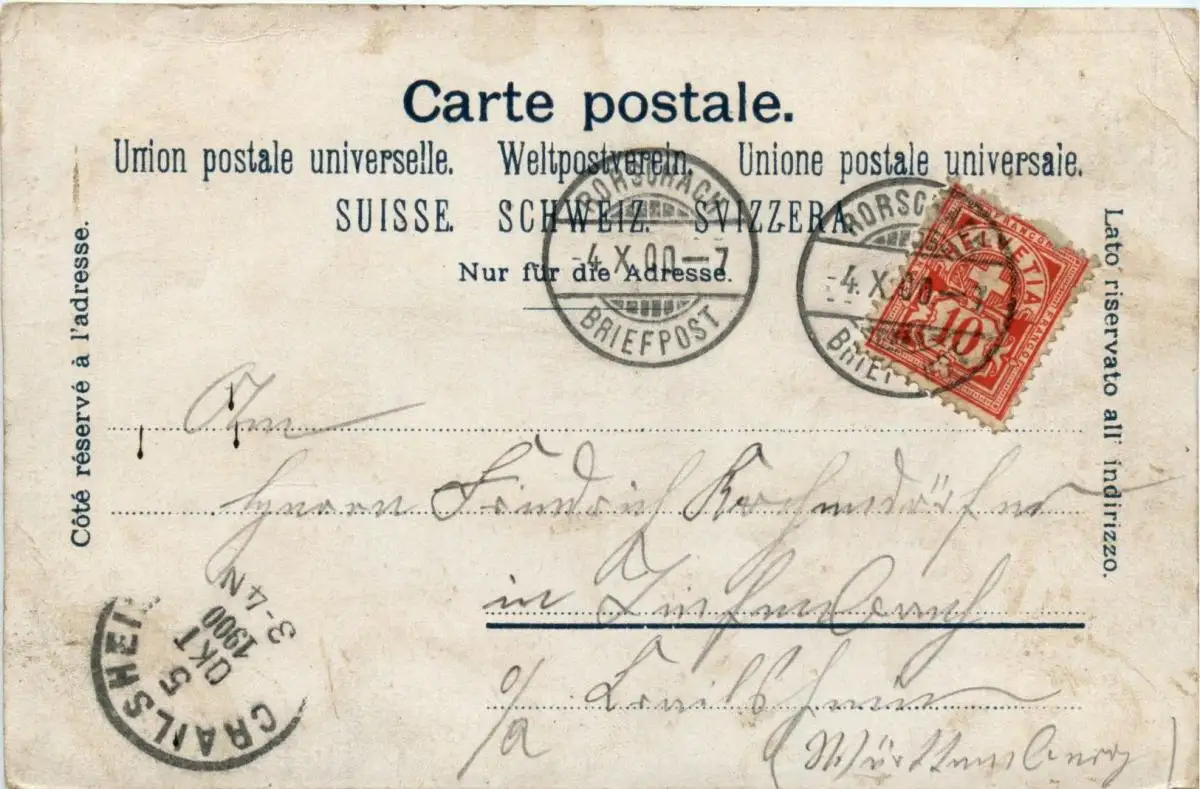 Carte postale.
Union postale universelle. Weltpostverein. Unione postale universale.
SUISSE. SCHWEIZ. SVIZZERA.
Nur für die Adresse.
Côté réservé à l'adresse.
Lato riservato all' indirizzo.
RORSCHACH
-4.X.00-7
BRIEFPOST
RORSCHACH
-4.X.00-7
BRIEFPOST
FRANCO
HELVETIA
FRANCO
10
An
Herrn Friedrich Kochendörfer
in Tiefenbach
o/a Crailsheim
(Württemberg)
CRAILSHEIM
5 OKT 1900
3-4N